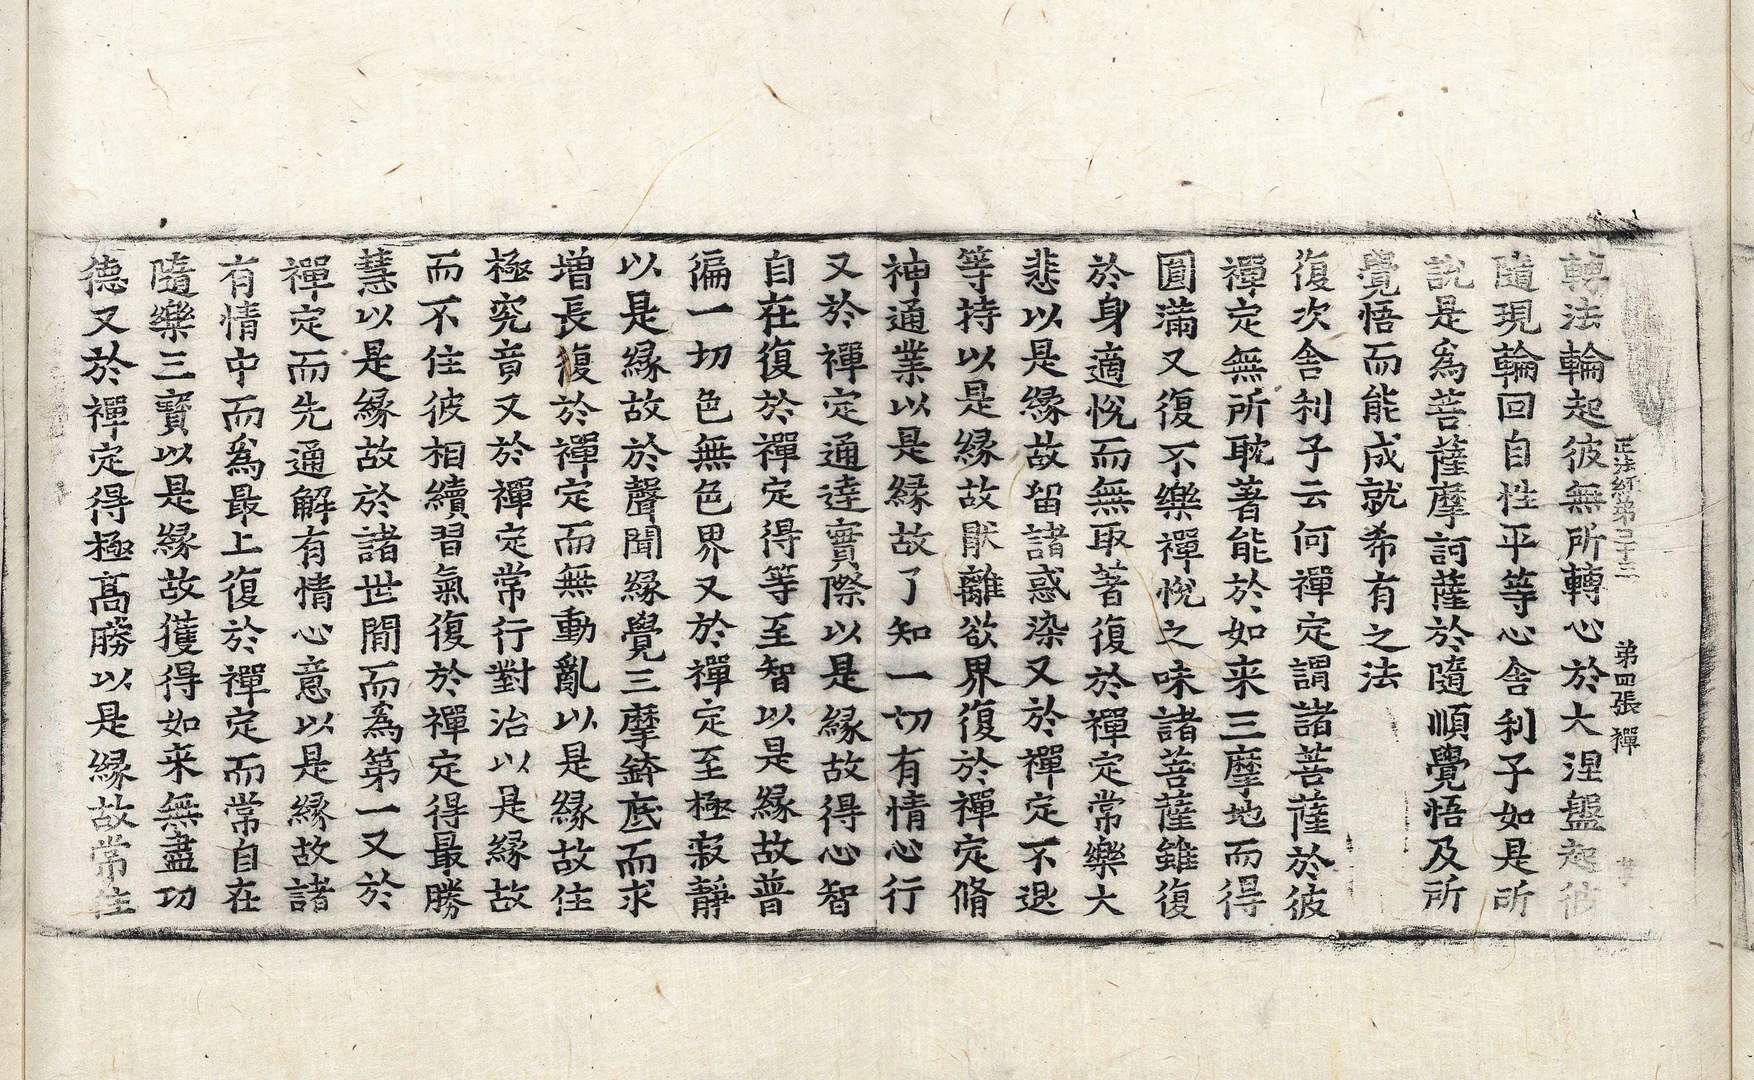 正法經第三十三　第四張　禪
轉法輪起彼無所轉心於大涅盤起彼
隨現輪回自性平等心舍利子如是所
說是爲菩薩摩訶薩於隨順覺悟及所
覺悟而能成就希有之法
復次舍利子云何禪定謂諸菩薩於彼
禪定無所耽著能於如来三摩地而得
圓滿又復不樂禪悅之味諸菩薩雖復
於身適悅而無取著復於禪定常樂大
悲以是緣故留諸惑染又於禪定不退
等持以是緣故厭離欲界復於禪定脩
神通業以是緣故了知一切有情心行
又於禪定通達實際以是緣故得心智
自在復於禪定得等至智以是緣故普
徧一切色無色界又於禪定至極寂靜
以是緣故於聲聞緣覺三摩鉢底而求
增長復於禪定而無動亂以是緣故住
極究竟又於禪定常行對治以是緣故
而不住彼相續習氣復於禪定得最勝
慧以是緣故於諸世間而爲第一又於
禪定而先通解有情心意以是緣故諸
有情中而爲最上復於禪定而常自在
隨樂三寶以是緣故獲得如来無盡功
德又於禪定得極高勝以是緣故常住